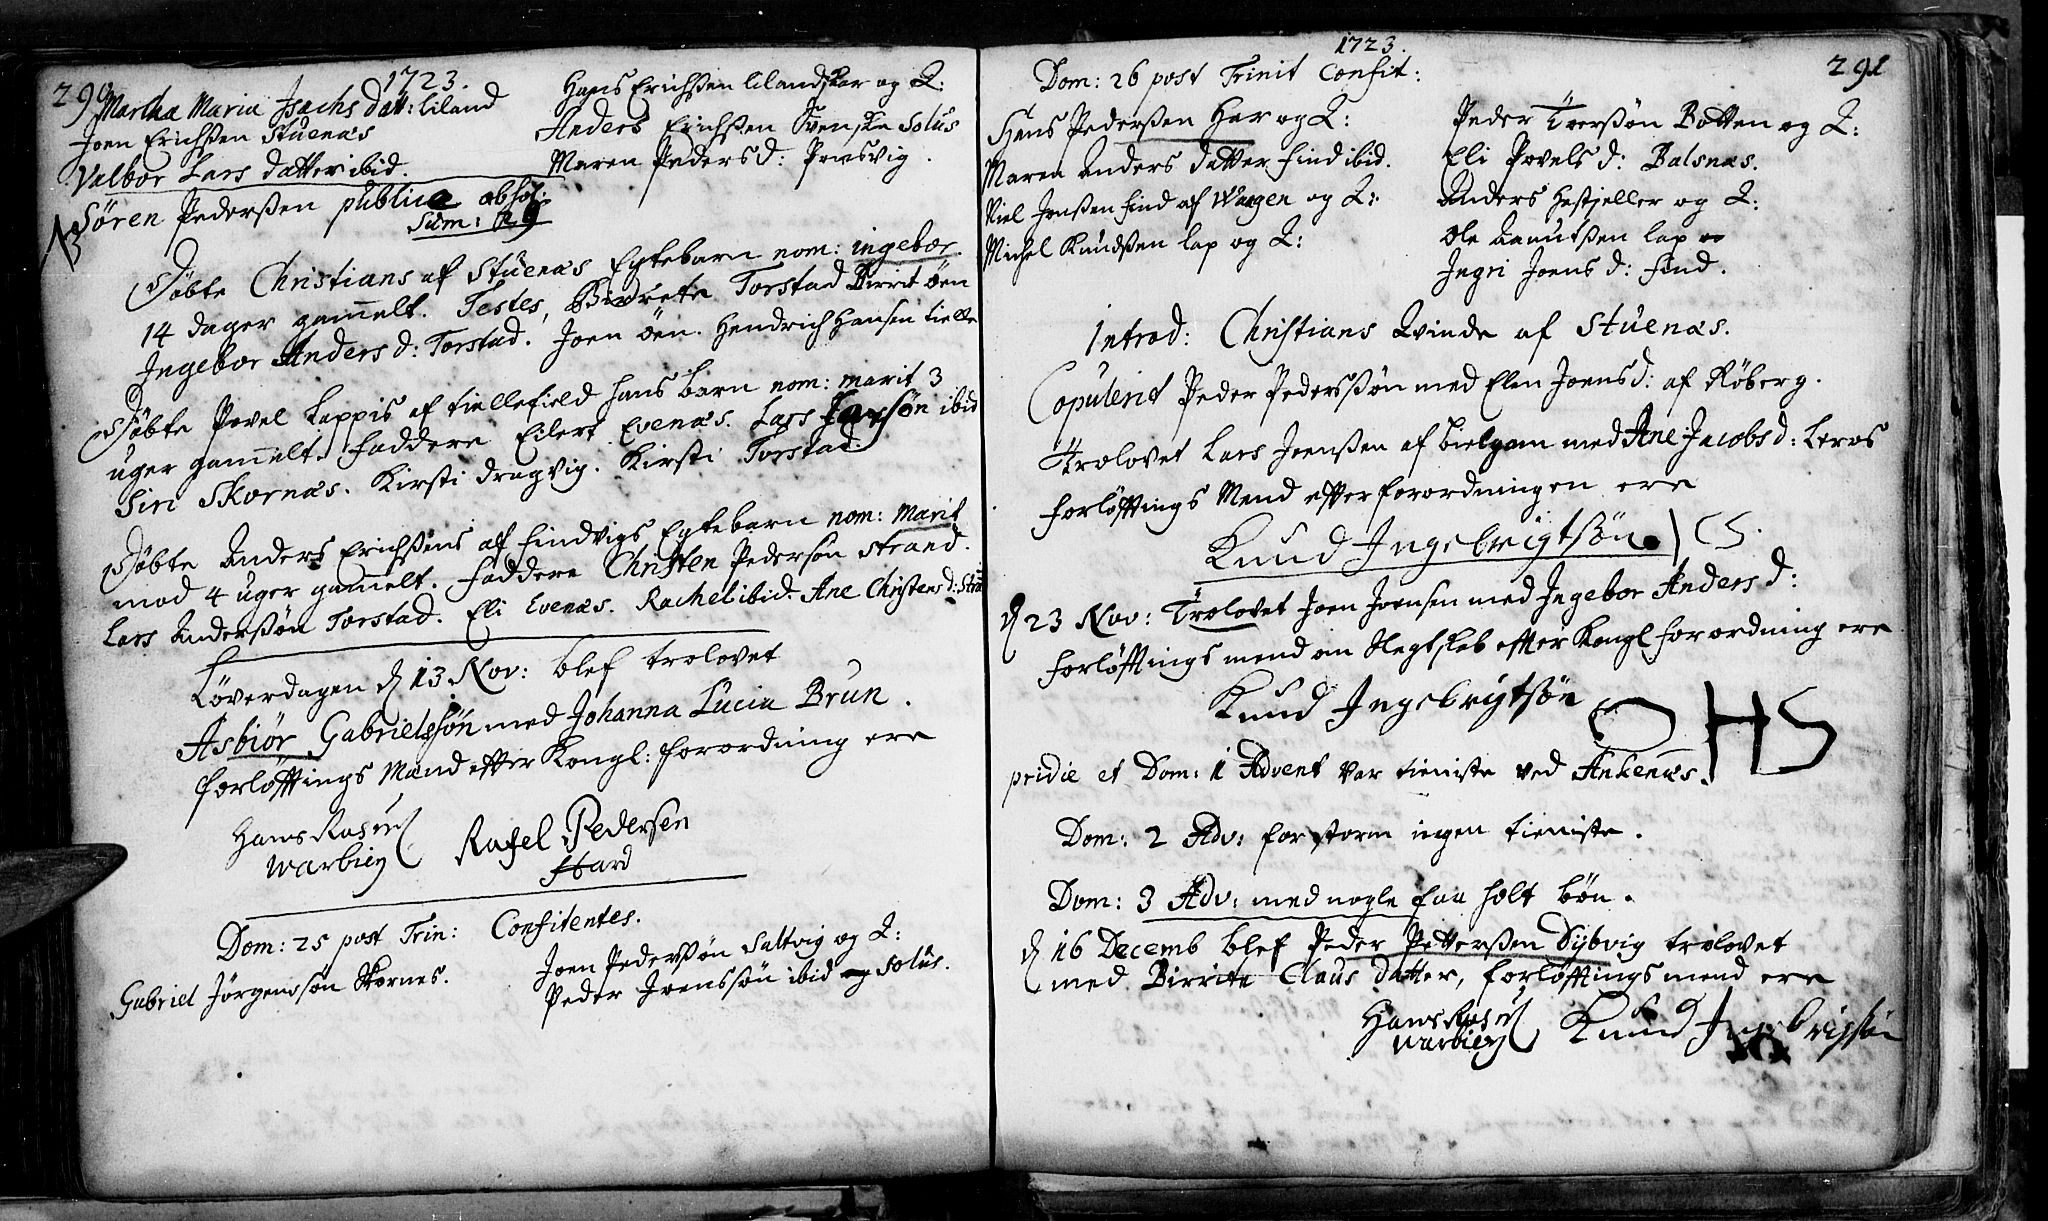 290
1723.
Martha Maria Isachs datt: liland
Joen Erichßen Stuenæs
Valbor Lars datter ibid.
Søren Pederßen publice absol:
Sum: 29
Hans Erichßen lilandskar og Q:
Anders Erichßen Svenske Solus
Maren Peders d: Præsvig.
Døbte Christians af Stuenæs Egtebarn nom: ingebor
14 dager gam̄elt. Testes, Birrete Torstad Birrit öen
Ingebor Anders d: Torstad. Joen öen. Hendrich Hansen tielle
Døbte Povel Lappis af tiellefield hans barn nom: marit 3
uger gam̄elt. Faddere Eilert Evenæs. Lars ibid
Siri Skornæs. Kirsti dragvig. Kirsti Torstad
Døbte Anders Erichßens af findvigs Egtebarn nom: Marit
mod 4 uger gam̄elt. Faddere Christen Pedersøn Strand.
Lars Anderßøn Torstad. Eli Evenæs. Rachel ibid. Ane Christens d: Stra
Løverdagen d 13 Nov: blef trolovet
Asbiör Gabrielssøn med Johanna Lucia Brun.
forløftings Mænd efter Kongl: forordning ere
Hans Rasm
Warbien
Rafel Pedersen
Hard
Dom: 25 post Trin: Confitentes.
Gabriel Jörgensøn Skornes.
Joen Pederßøn Saltvig og Q:
Peder Joenssøn ibid Solus.
1723.
291
Dom: 26 post Trinit Confit:
Hans Pederßen Har og Q:
Maren Anders datter find ibid.
Niel Jonßen find af Waagen og Q:
Michel Knudßen lap og Q:
Peder Iverßøn Botten og Q:
Eli Povels d: Balsnæs.
Anders Hestfieller og Q:
Ole Knutßen lap
Ingri Joens d: find.
Introd: Christians Qvinde af Stuenæs.
Copulerit Peder Pedersßøn med Elen Joens d: af Røberg.
Trolovet Lars Joenßen af bielgam med Ane Jacobs d: Leros
forløftings Mend efter forordningen ere
Knud Ingebrigtsøn CS.
d 23 Nov: Trolovet Joen Joensen med Ingebor Anders d:
forløftings mend om Slegtskab efter Kongl forordning ere
Knud Ingebrigtsøn HS
pridie et Dom: 1 Advent var tieniste ved Ankenæs.
Dom: 2 Adv: for storm ingen tieniste.
Dom: 3 Adv: med nogle faa holt bøn.
d 16 Decemb blef Peder Petterßen Dybvig trolovet
med Birrite Claus datter, forløftings mend ere
Hans Rasm
Warbien
Knud Ingebrigtsøn